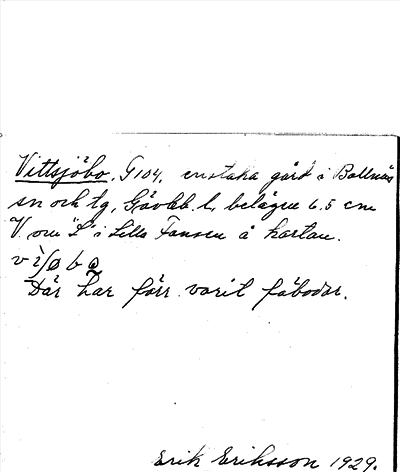 Vittsjöbo. G104. enstaka gård i Bollnäs
sn och tg, Gävleb. l, belägen 6.5 cm
V. om "L" i Lilla Fansen å kartan.
v i ʃ ø b ɷ
Där har förr varit fäbodar.
Erik Eriksson 1929.